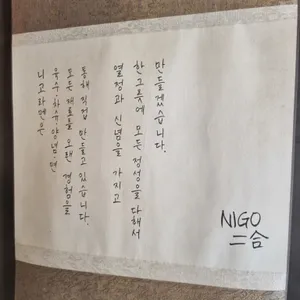 니고라멘은
육수,차슈,양념,면
모든 재료를 오랜 경험을
통해 직접 만들고 있습니다.
열정과 신념을 가지고
한그릇에 모든 정성을 다해서
만들겠습니다.
NIGO
二合